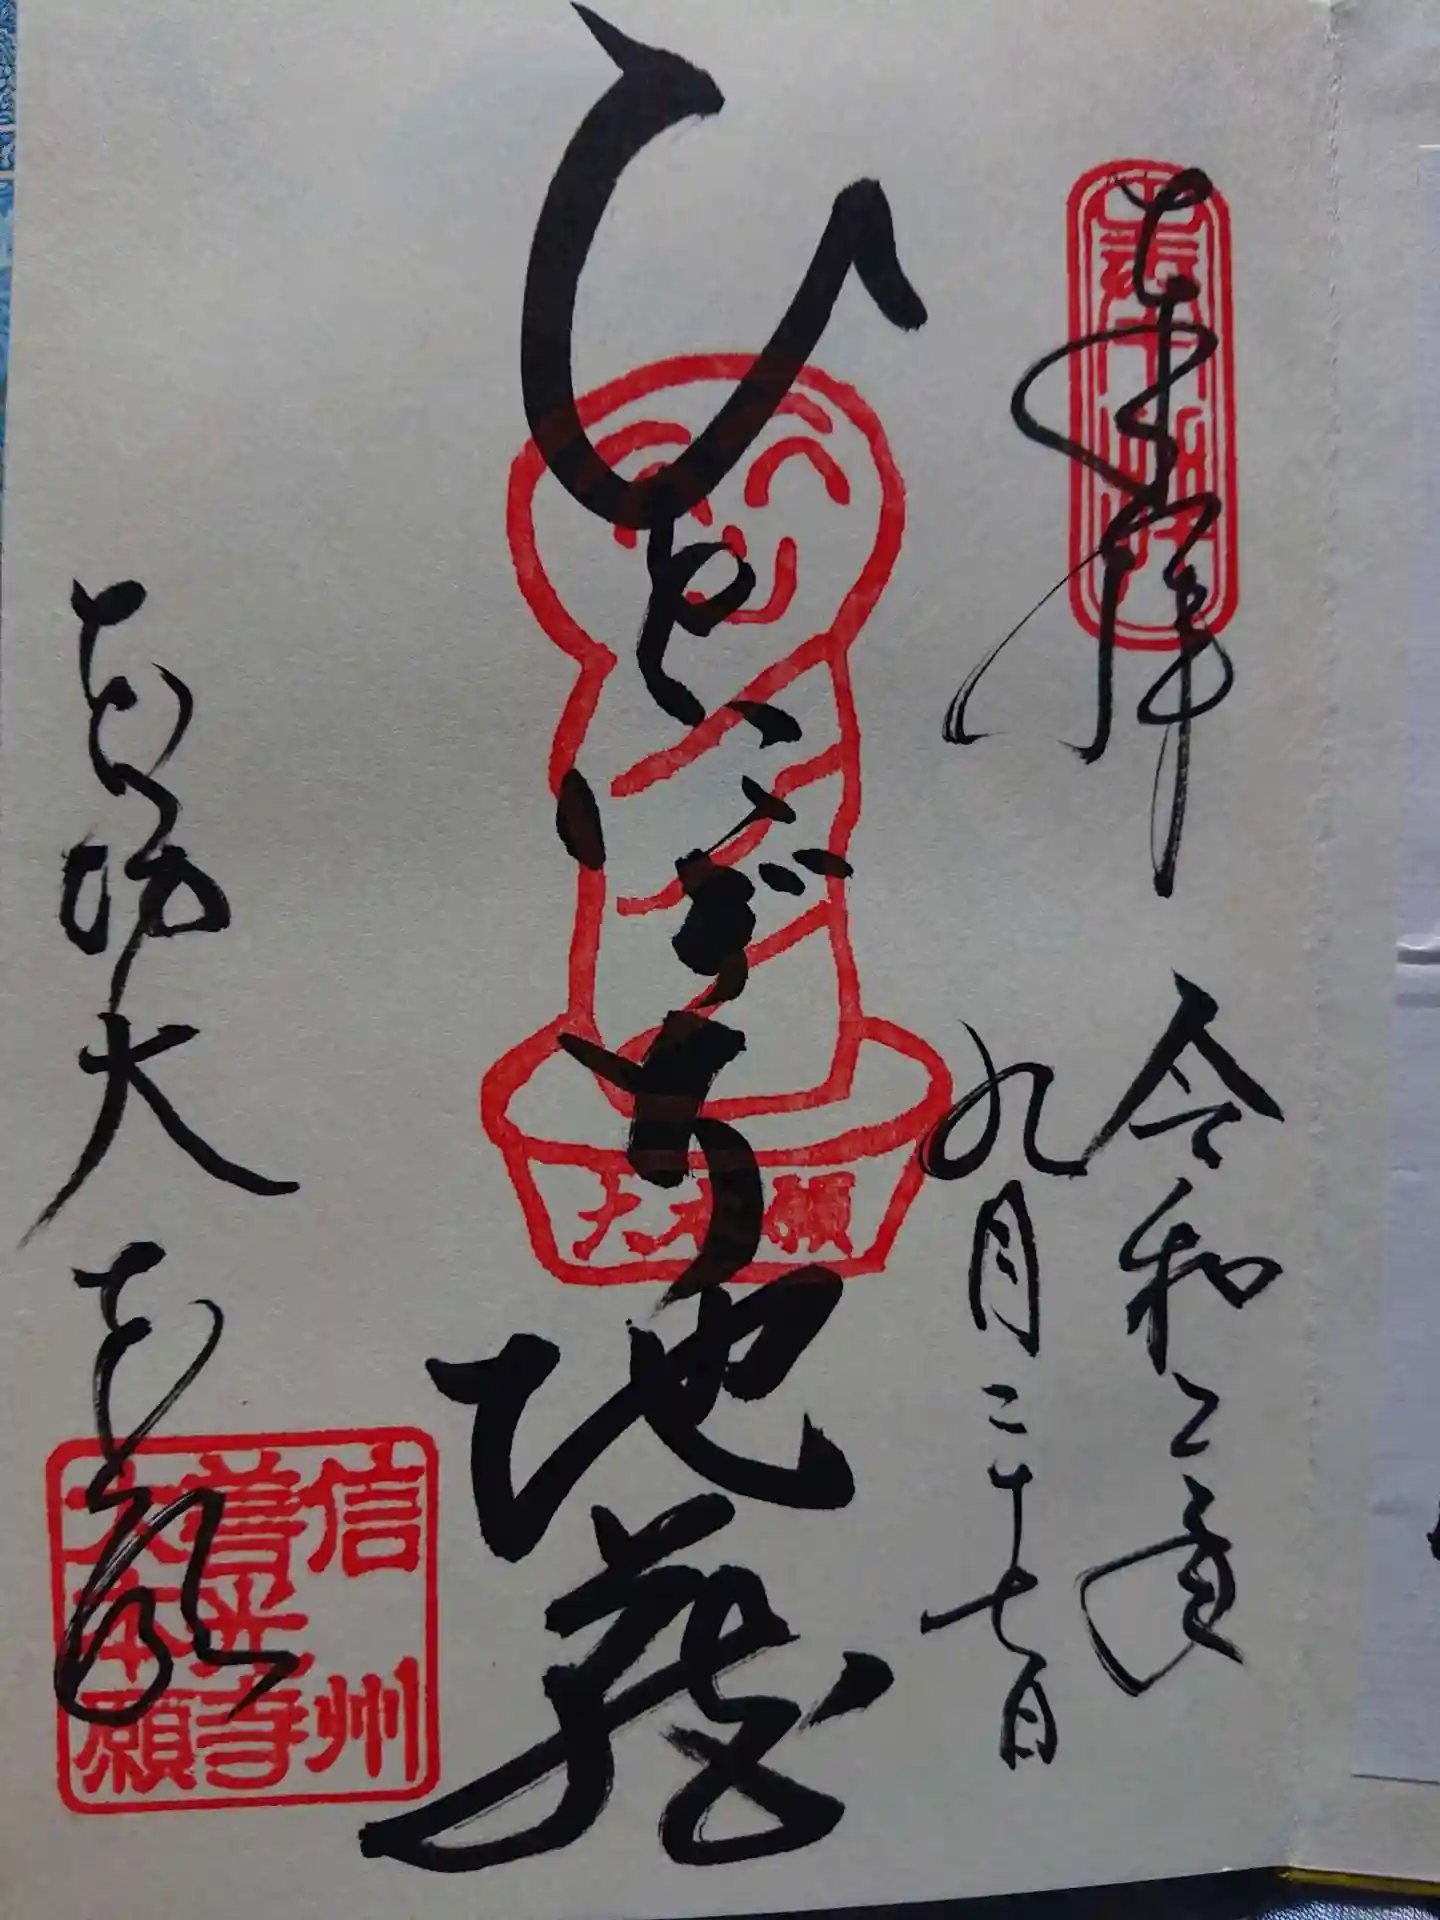 奉拝
令和二年
九月二十七日
ひとにぎり地蔵
大本願
善光寺大本願
信州
善光寺
大本願